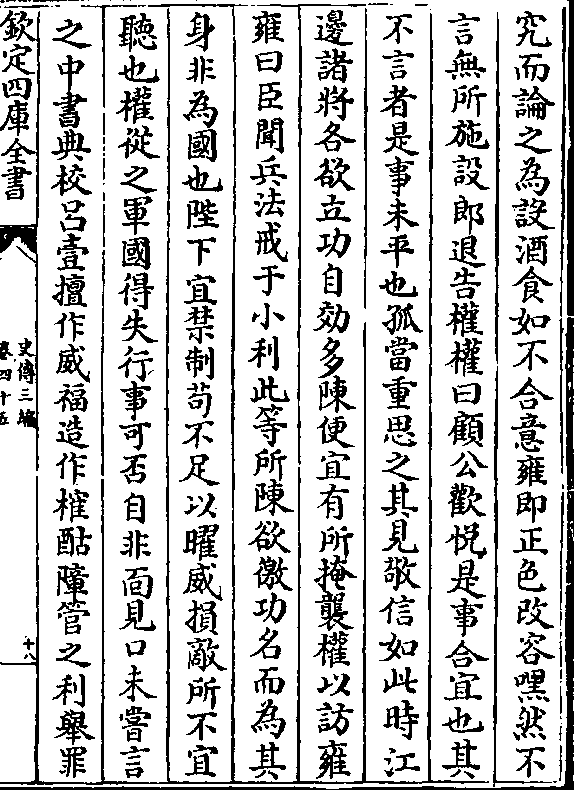 究而論之為設酒食如不合意雍即正色改容嘿然不
言無所施設郎退告權權曰顧公歡悦是事合宜也其
不言者是事未平也孤當重思之其見敬信如此時江
邊諸將各欲立功自効多陳便宜有所掩襲權以訪雍
雍曰臣聞兵法戒于小利此等所陳欲儌功名而為其
身非為國也陛下宜禁制苟不足以曜威損敵所不宜
聽也權從之軍國得失行事可否自非面見口未嘗言
之中書典校呂壹擅作威福造作榷酤障管之利舉罪
欽定四庫全書
史傳三編
卷四十五
十八